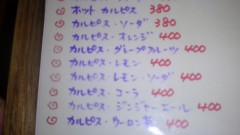 ホット カルピス 380
カルピス・ソーダ 380
カルピス・オレンジ 400
カルピス・グレープフルーツ 400
カルピス・レモン 400
カルピス・レモン・ソーダ 400
カルピス・コーラ 400
カルピス・ジンジャーエール 400
カルピス・ウーロン茶 400